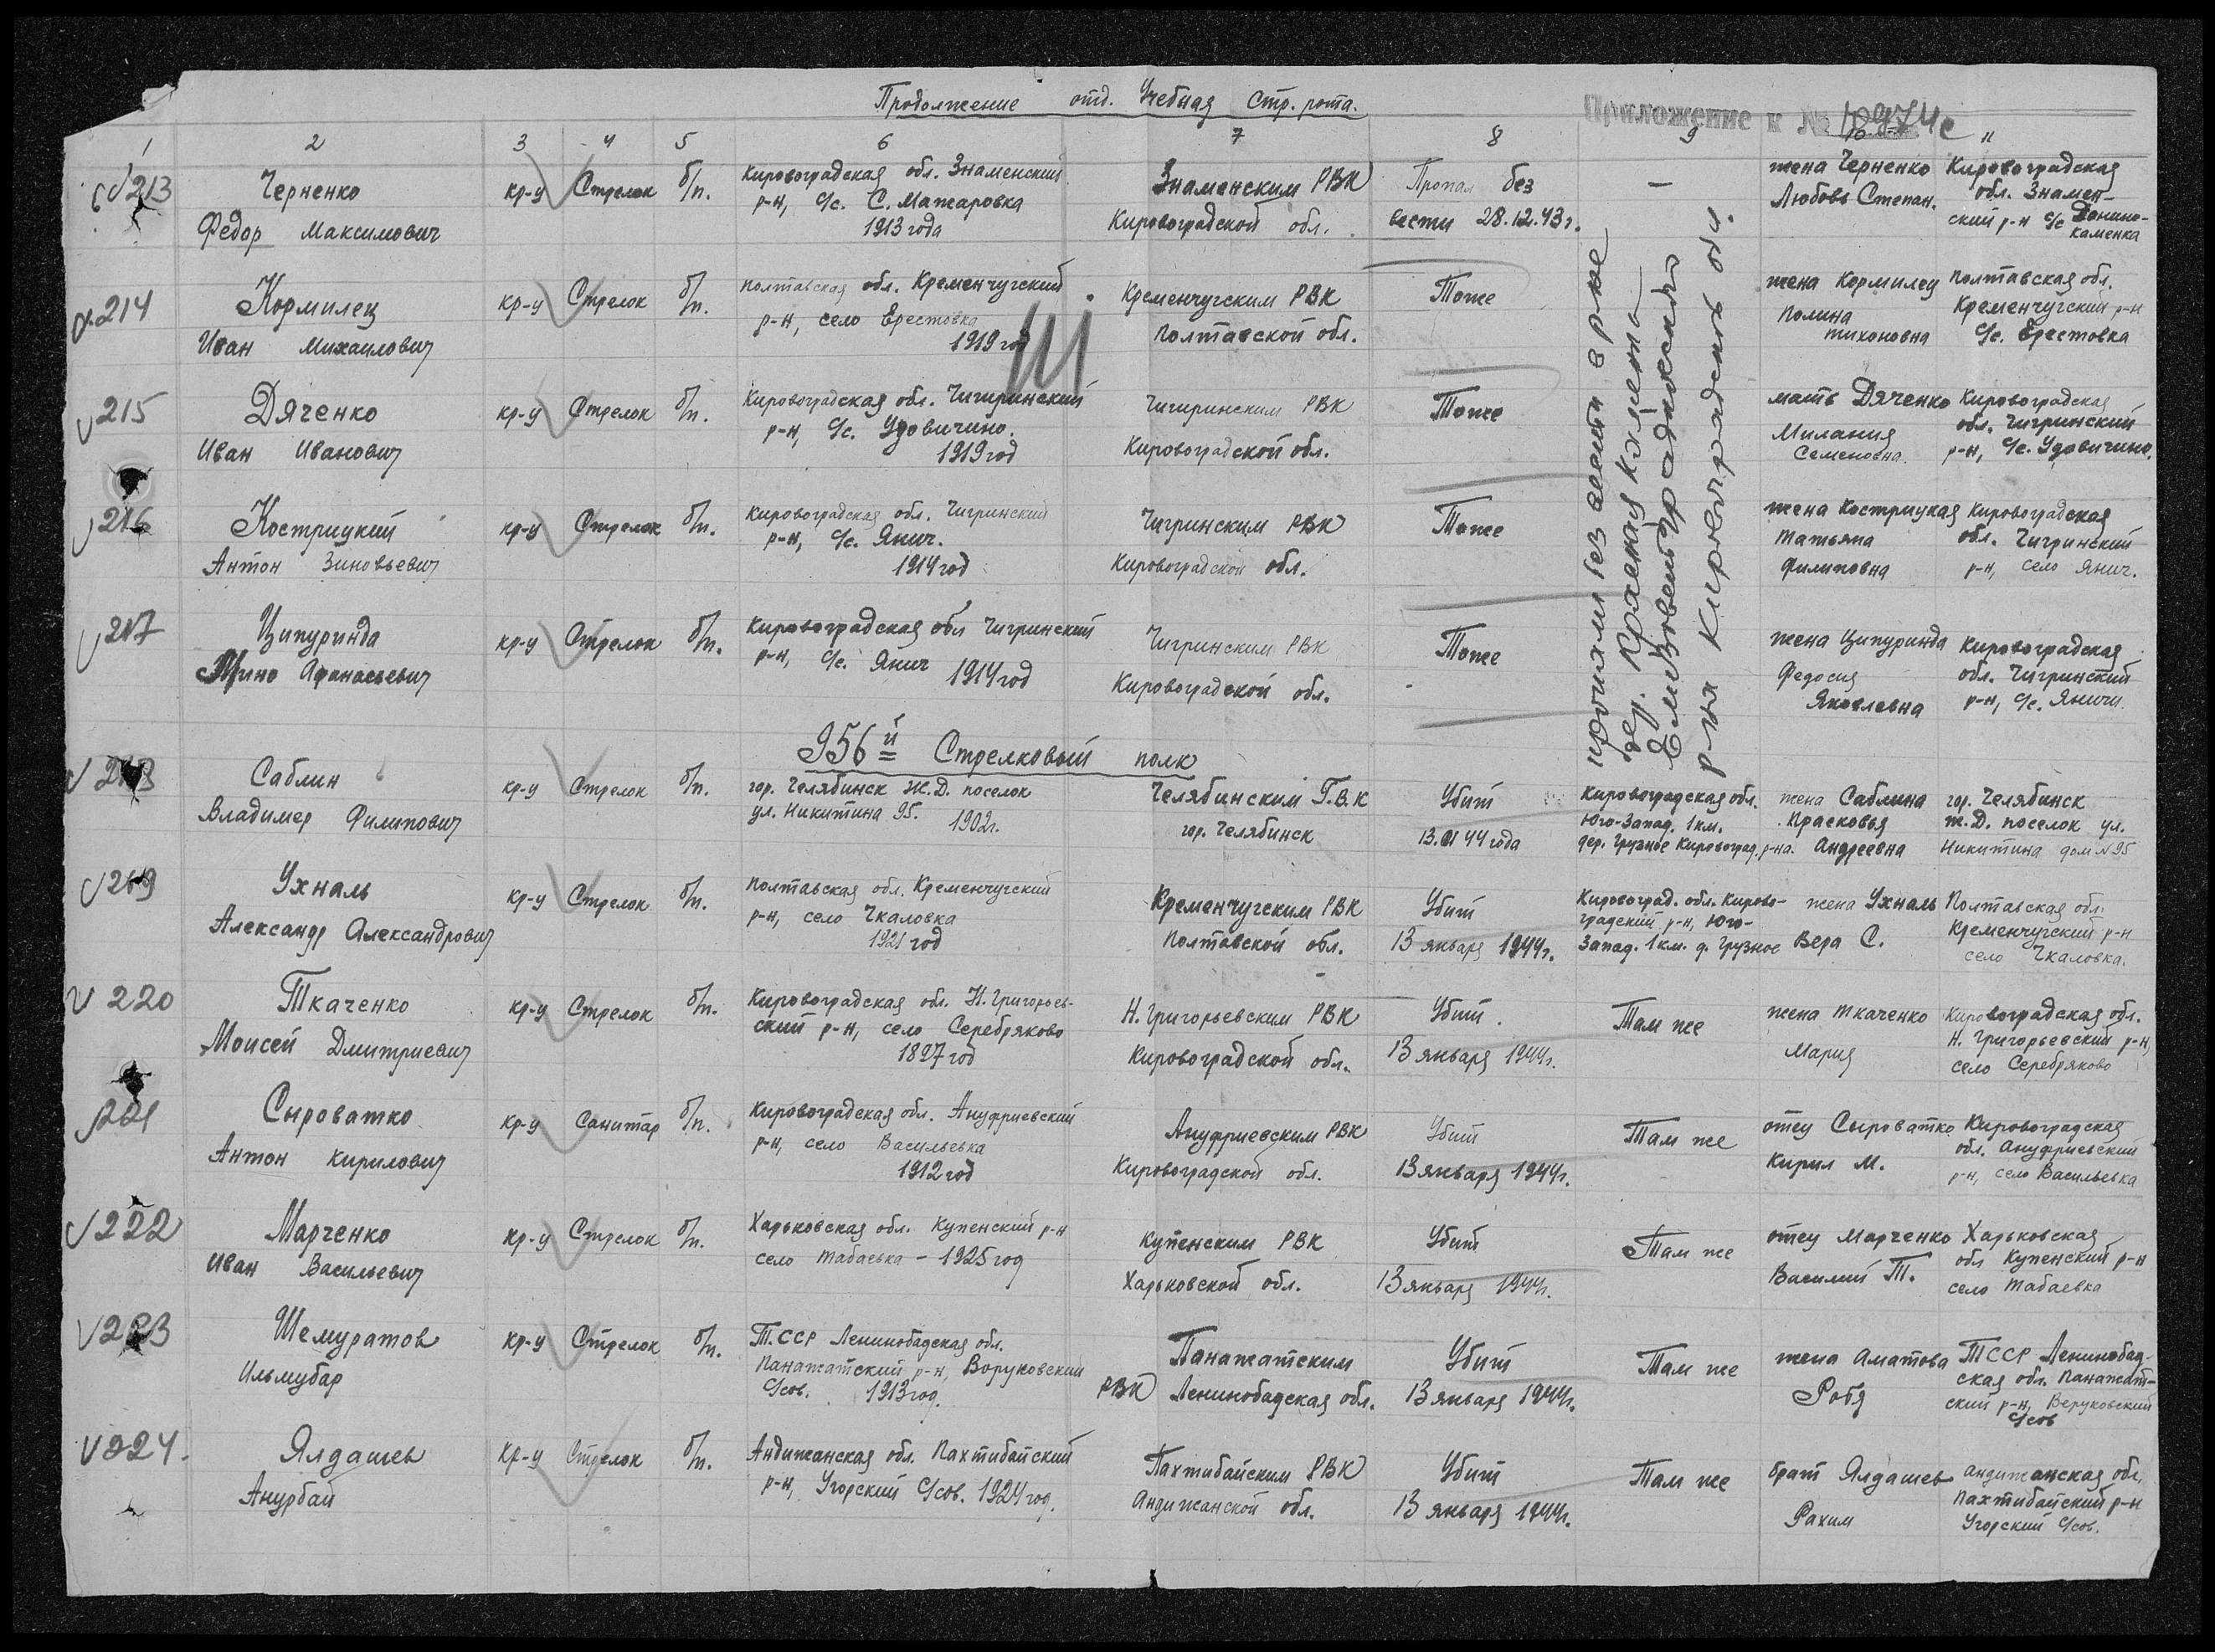 Продолжение отд. Учебная Стр. рота.
Приложение к № 10974с
1 2 3 4 5 6 7 8 9 10 11
213 Черненко кр-ц Стрелок б/п. Кировоградская обл. Знаменский Знаменским РВК Пропал без — жена Черненко Кировоградская
Федор Максимович р-н, с/с. С. Мажаровка Кировоградской обл. вести 28.12.43г. Любовь Степан. обл. Знамен-
1913 года ский р-н с/с
Каменка
214 Кормилец кр-ц Стрелок б/п. Полтавская обл. Кременчугский Кременчугским РВК Тоже жена Кормилец Полтавская обл.
Иван Михаилович р-н, село Ерестовка Полтавской обл. Полина Кременчугский р-н
1919 год Тихоновна с/с. Ерестовка
215 Дяченко кр-ц Стрелок б/п. Кировоградская обл. Чигиринский Чигиринским РВК Тоже мать Дяченко Кировоградская
Иван Иванович р-н, с/с. Удовичино. Кировоградской обл. Милания обл. Чигринский
1919 год Семеновна р-н, с/с. Удовичино.
216 Кострицкий кр-ц Стрелок б/п. Кировоградская обл. Чигринский Чигринским РВК Тоже жена Кострицкая Кировоградская
Антон Зиновьевич р-н, с/с. Янич. Кировоградской обл. Татьяна обл. Чигринский
1914 год Филиповна р-н, село Янич.
217 Ципуринда кр-ц Стрелок б/п. Кировоградская обл Чигринский Чигринским РВК Тоже жена Ципуринда Кировоградская
Афанасьевич р-н, с/с. Янич 1914 год Кировоградской обл. Федосия обл. Чигринский
Яковлевна р-н, с/с. Янича.
пропали без вести в р-не
дер. Красная Каменка
Елизаветградковский
р-на Кировоградской обл.
956й Стрелковый полк
218 Саблин кр-ц Стрелок б/п. гор. Челябинск Ж.Д. поселок Челябинским Г.В.К Убит Кировоградская обл. жена Саблина гор. Челябинск
Владимер Филипович ул. Никитина 95. 1902г. гор. Челябинск 13.01 44 года Юго-Запад. 1 км. Прасковья ж.Д. поселок ул.
дер. Грузное Кировоград. р-на. Андреевна Никитина дом №95
219 Ухналь кр-ц Стрелок б/п. Полтавская обл. Кременчугский Кременчугским РВК Убит Кировоград. обл. Кирово- жена Ухналь Полтавская обл.
Александр Александрович р-н, село Чкаловка Полтавской обл. 13 января 1944г. градский р-н, Юго- Вера С. Кременчугский р-н
1921 год Запад. 1 км. д. Грузное село Чкаловка.
220 Ткаченко кр-ц Стрелок б/п. Кировоградская обл. Н. Григорьев- Н. Григорьевским РВК Убит. Там же жена Ткаченко Кировоградская обл.
Моисей Дмитриевич ский р-н, село Серебряково Кировоградской обл. 13 января 1944г. Мария Н. Григорьевский р-н,
1897 год село Серебряково
221 Сыроватко кр-ц Санитар б/п. Кировоградская обл. Ануфриевский Ануфриевским РВК Убит Там же отец Сыроватко Кировоградская
Антон Кирилович р-н, село Васильевка Кировоградской обл. 13 января 1944г. Кирил М. обл. Ануфриевский
1912 год р-н, село Васильевка
222 Марченко кр-ц Стрелок б/п. Харьковская обл. Купенский р-н Купенским РВК Убит Там же отец Марченко Харьковская
Иван Васильевич село Табаевка – 1925 год Харьковской обл. 13 января 1944г. Василий Т. обл Купенский р-н
село Табаевка
223 Шемуратов кр-ц Стрелок б/п. Т.ССР Ленинобадская обл. Панжатским Убит Там же жена Аматова ТССР Ленинобад-
Ильмубар Панажатский р-н, Воруковский РВК Ленинобадская обл. 13 января 1944г. Робя ская обл. Панажат-
с/сов. 1913 год. ский р-н, Веруковский
с/сов
224. Ялдашев кр-ц Стрелок б/п. Андижанская обл. Пахтибайский Пахтибайским РВК Убит Там же брат Ялдашев андижанская обл.
Анурбай р-н, Угорский с/сов. 1924 год. Андижанской обл. 13 января 1944г. Рахим Пахтибайский р-н
Угорский с/сов.